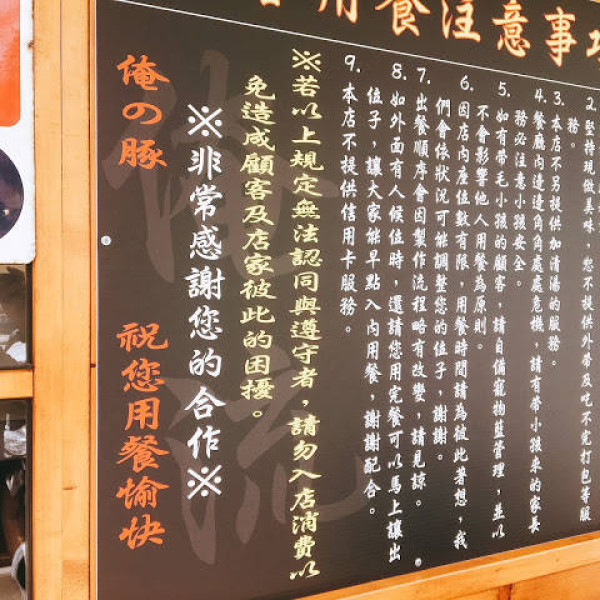 用餐注意事項
2. 堅持現做美味，恕不提供外帶及吃不完打包等服
務。
3. 本店不另提供加清湯的服務。
4. 餐廳內邊邊角角處處危機，請有帶小孩來的家長
務必注意小孩安全。
5. 如有帶毛小孩的顧客，請自備寵物籃管理，並以
不會影響他人用餐為原則。
6. 因店內座位數有限，用餐時間請為彼此著想，我
們會依狀況可能調整您的位子，謝謝。
7. 出餐順序會因製作流程略有改變，請見諒。
8. 如外面有人候位時，還請您用完餐可以馬上讓出
位子，讓大家能早點入內用餐，謝謝配合。
9. 本店不提供信用卡服務。
※若以上規定無法認同與遵守者，請勿入店消費以
免造成顧客及店家彼此的困擾。
※非常感謝您的合作※
俺の豚 祝您用餐愉快
俺流